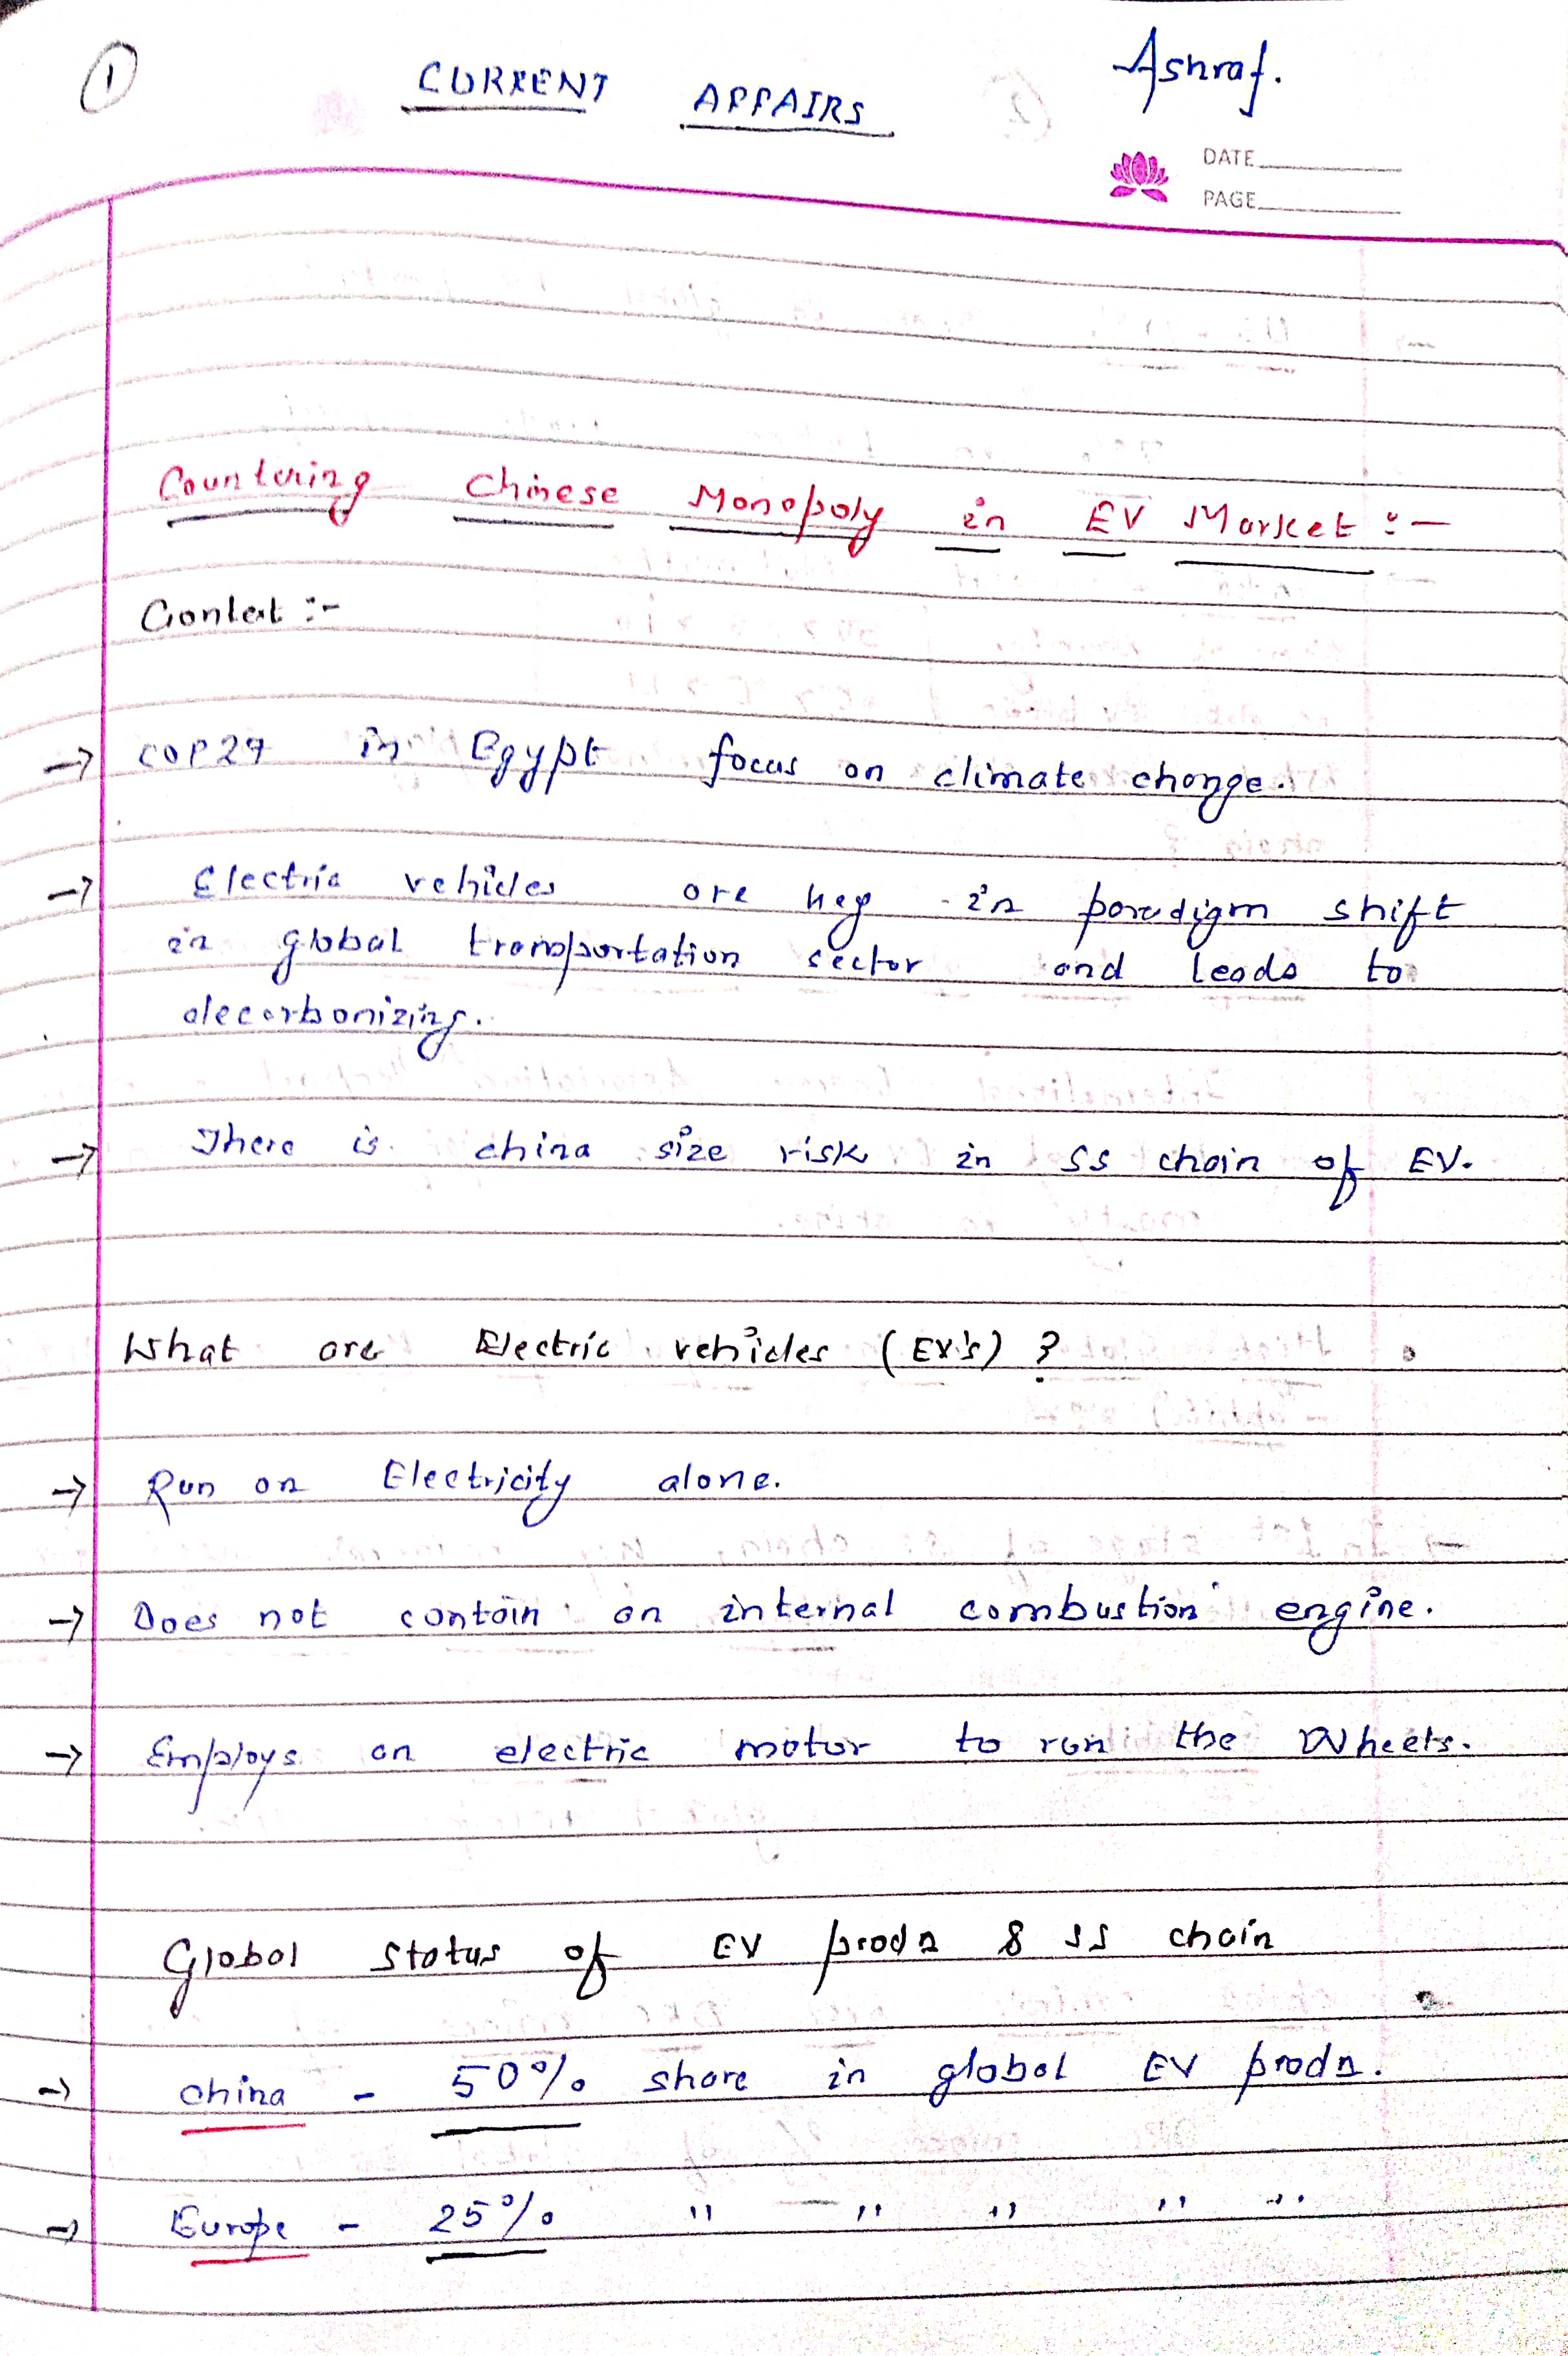 1
CURRENT AFFAIRS
Ashraf.
DATE
PAGE
Countering Chinese Monopoly in EV Market :-
Context :-
→ COP27 in Egypt focus on climate change.
→ Electric vehicles are key in paradigm shift
in global transportation sector and leads to
decarbonizing.
→ There is china size risk in SS chain of EV.
What are Electric vehicles (EV's) ?
→ Run on Electricity alone.
→ Does not contain an internal combustion engine.
→ Employs an electric motor to run the Wheels.
Global status of EV prodn & SS chain
→ China - 50% share in global EV prodn.
→ Europe - 25% " " " " "